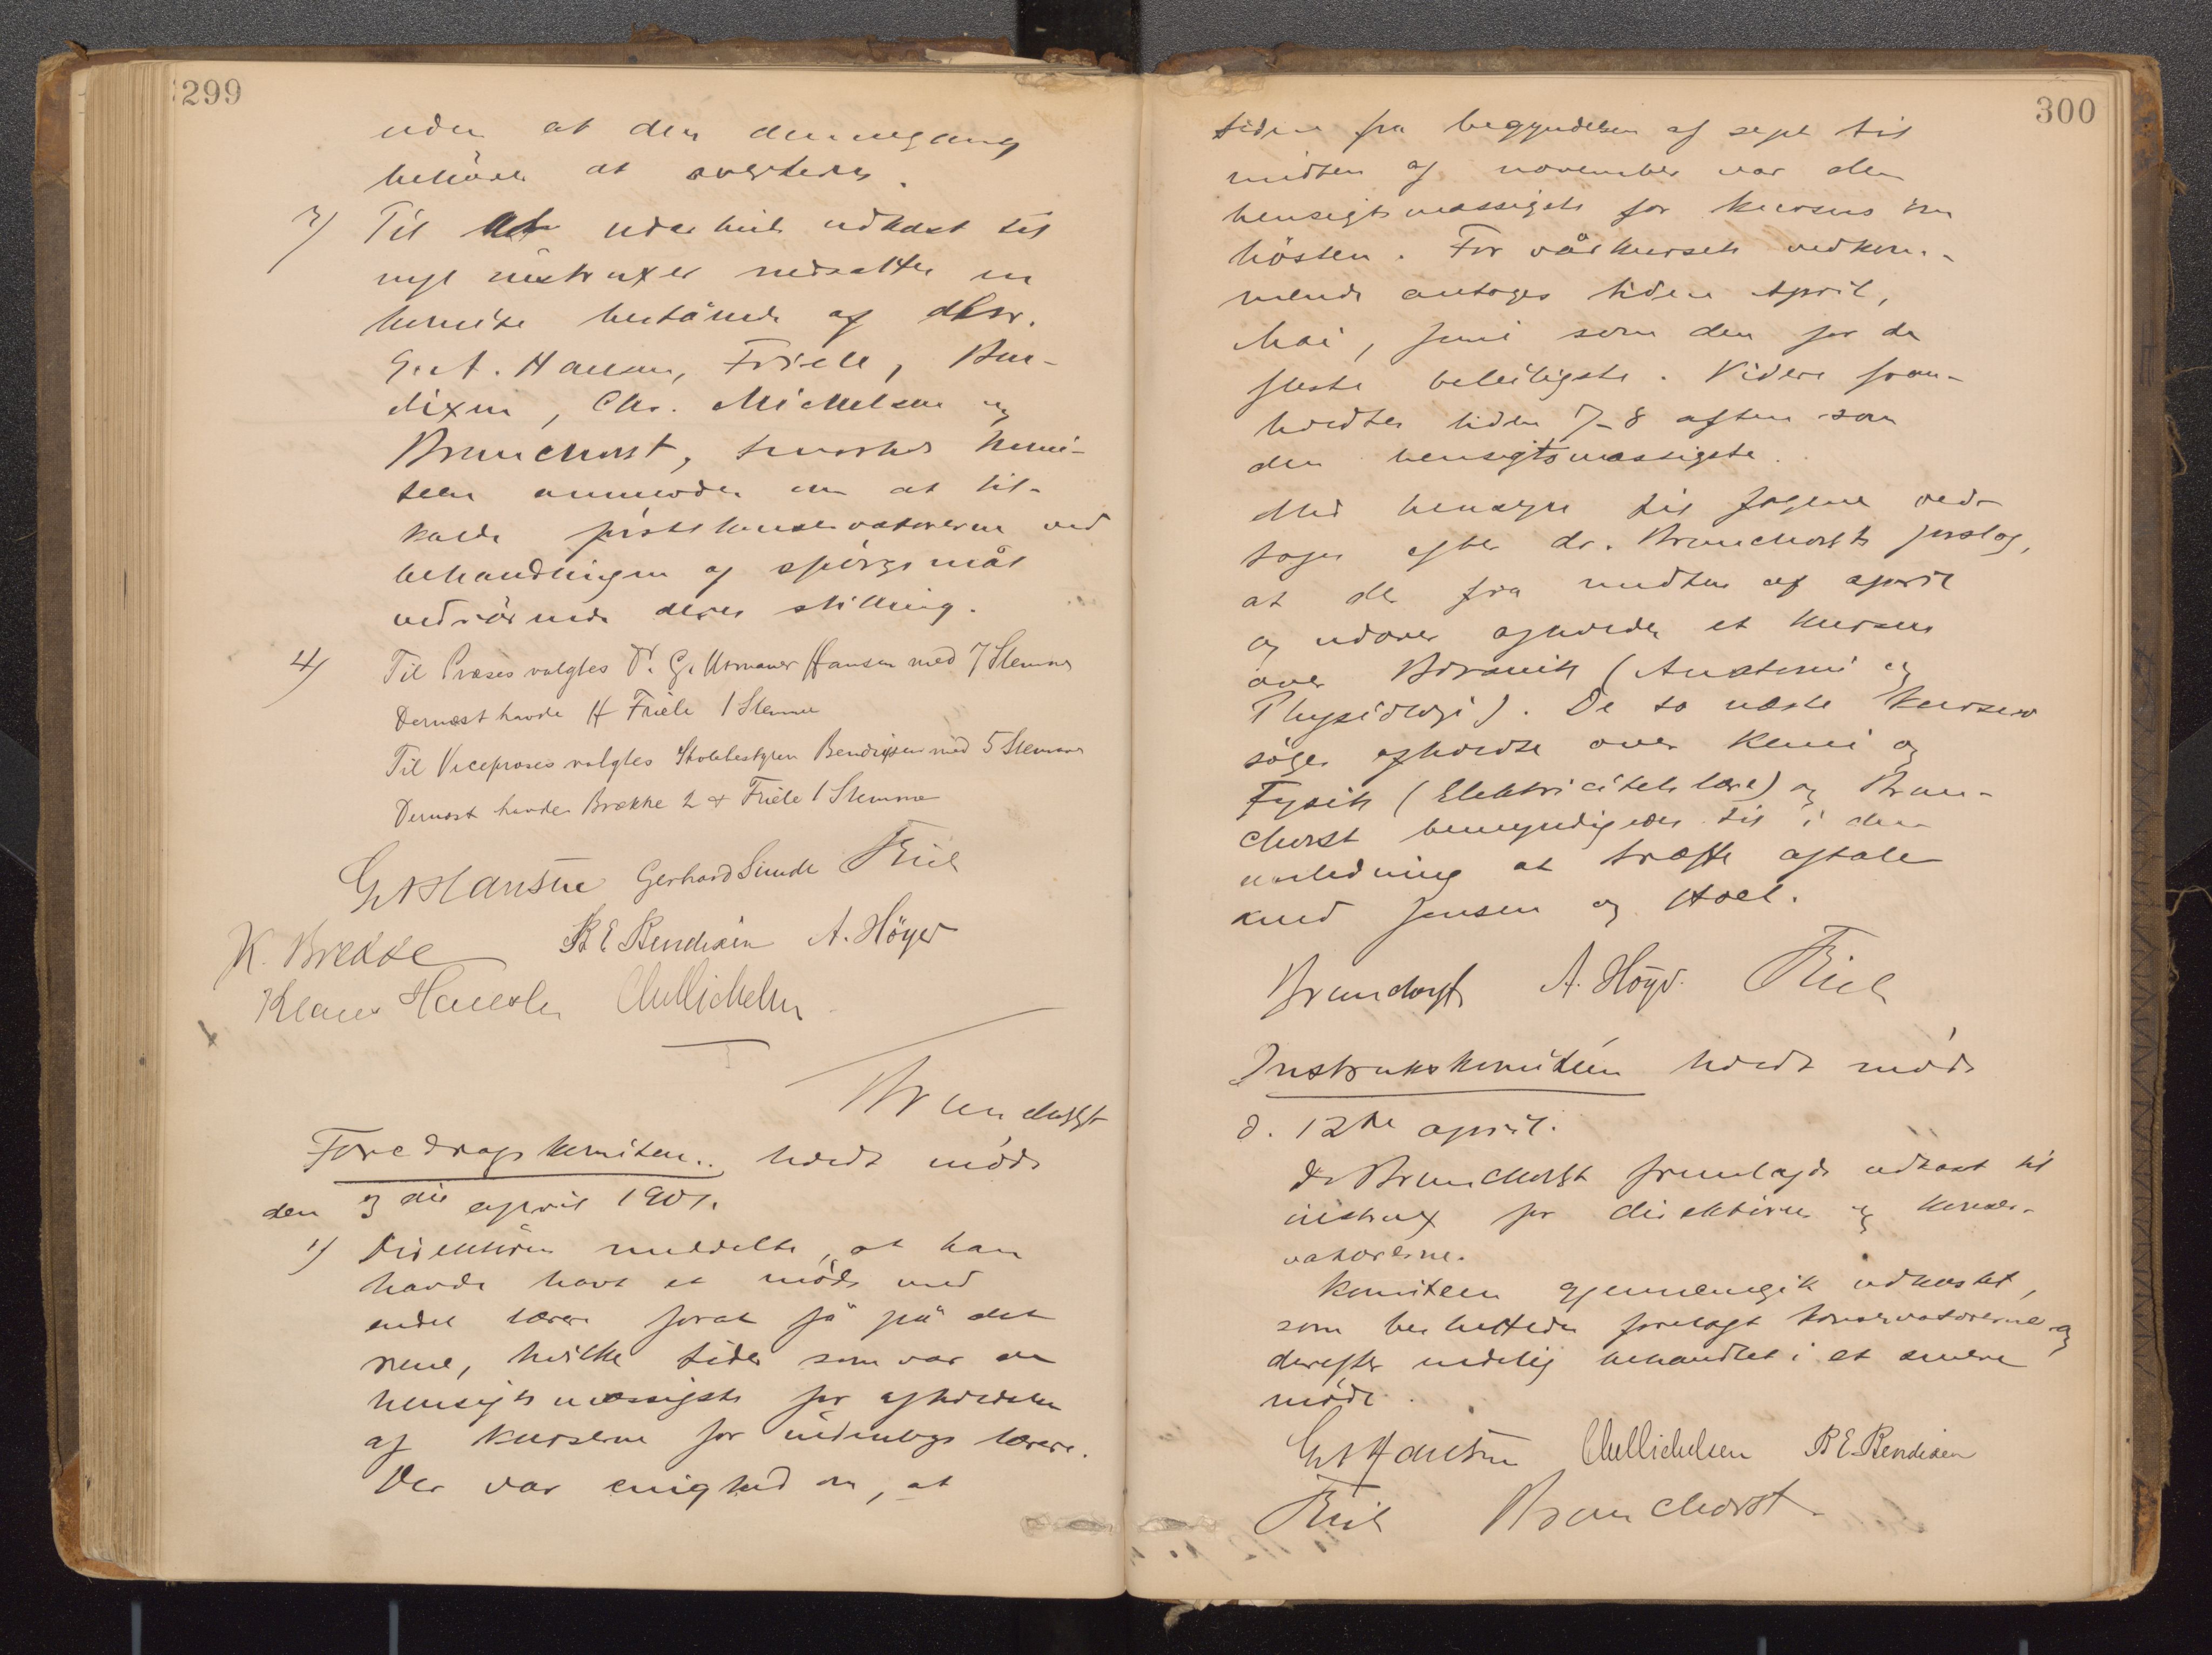 299
uden at den dennegang
behöver at oversteds.
3) Til at udarbeide udkast til
nye instruxer nedsattes en
komite bestående af dhrr.
G. A. Hansen, Friele, Ben-
dixen, Chr. Michelsen og
Brunchorst, hvorhos komi-
teen anmodes om at til-
kalde konservatorerne ved
behandlingen af spörgsmål
vedrörende deres stilling.
4) Til Præses valgtes Dr. G. Armauer Hansen med 7 Stemmer
Dernæst havde H Friele 1 Stemme
Til Vicepræses valgtes Skolebestyrer Bendixen med 5 Stemmer
Dernæst havde Brække 2 & Friele 1 Stemme
G A Hansen Gerhard Sunde Friele
K. Brekke B E Bendixen A. Höyer
Klaus Hanssen Chr Michelsen
Brunchorst
Foredragskomiteen holdt möde
den 9die april 1901.
1) Direktören meddelte, at han
havde havt et möde med
endel lærere forat få på det
rene, hvilke tider som var de
hensigtsmæssigste for afholdelsen
af kurserne for udenbygs lærere.
Der var enighed om, at
300
tiden fra begyndelsen af sept til
midten af november var den
hensigtsmæssigste for kursus om
hösten. For vårkursets vedkom-
mende antoges tiden April,
Mai, Juni som den for de
fleste beleiligste. Videre frem-
holdtes tiden 7-8 aften som
den hensigtsmæssigste.
Med hensyn til fagene ved-
toges efter dr. Brunchorsts forslag,
at der fra midten af april
og udover afholdes et kursus
over Botanik (Anatomi og
Physiologi). De to næste kurser
söges afholdte over kemi og
Fysik (Elektricitetslære) og Brun-
chorst bemyndigedes til i den
anledning at træffe aftale
med Jensen og Hoel.
Brunchorst A. Höyer Friele
Instrukskomiteen holdt möde
d. 12te april.
Dr Brunchorst fremlagde udkast til
instrux for direktören og konser-
vatorerne.
Komiteen gjennemgik udkastet,
som besluttedes forelagt konservatorerne og
derefter endelig behandlet i et senere
möde.
G A Hansen Chr Michelsen B E Bendixen
Friele Brunchorst